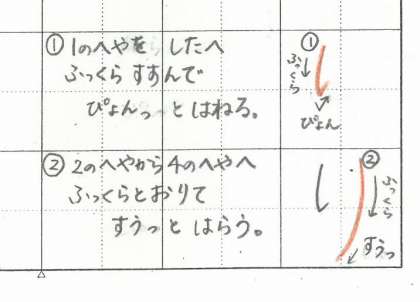 ① 1のへやを したへ
ふっくら すすんで
ぴょんっ とはねる。
①
ふっくら
ぴょん
② 2のへやから4のへやへ
ふっくらとおりて
すうっと はらう。
②
ふっくら
すうっ